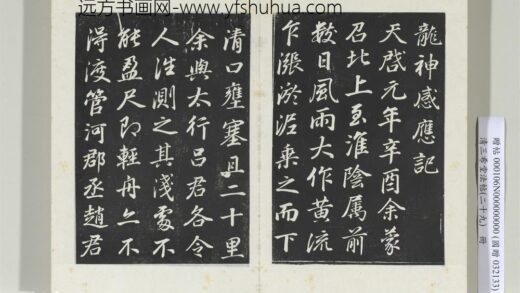 远方书画网-www.yfshuhua.com
龍神感應記
天啟元年辛酉余蒙
召北上至淮陰属前
數日風雨大作黄流
乍漲淤沽乘之而下
清口壅塞且二十里
余與太行吕君各令
人往測之其淺處不
能盈尺即輕舟亦不
得渡管河郡丞趙君
贈帖 000106N000000000 (國贈 032133)
清三希堂法帖(二十九) 冊